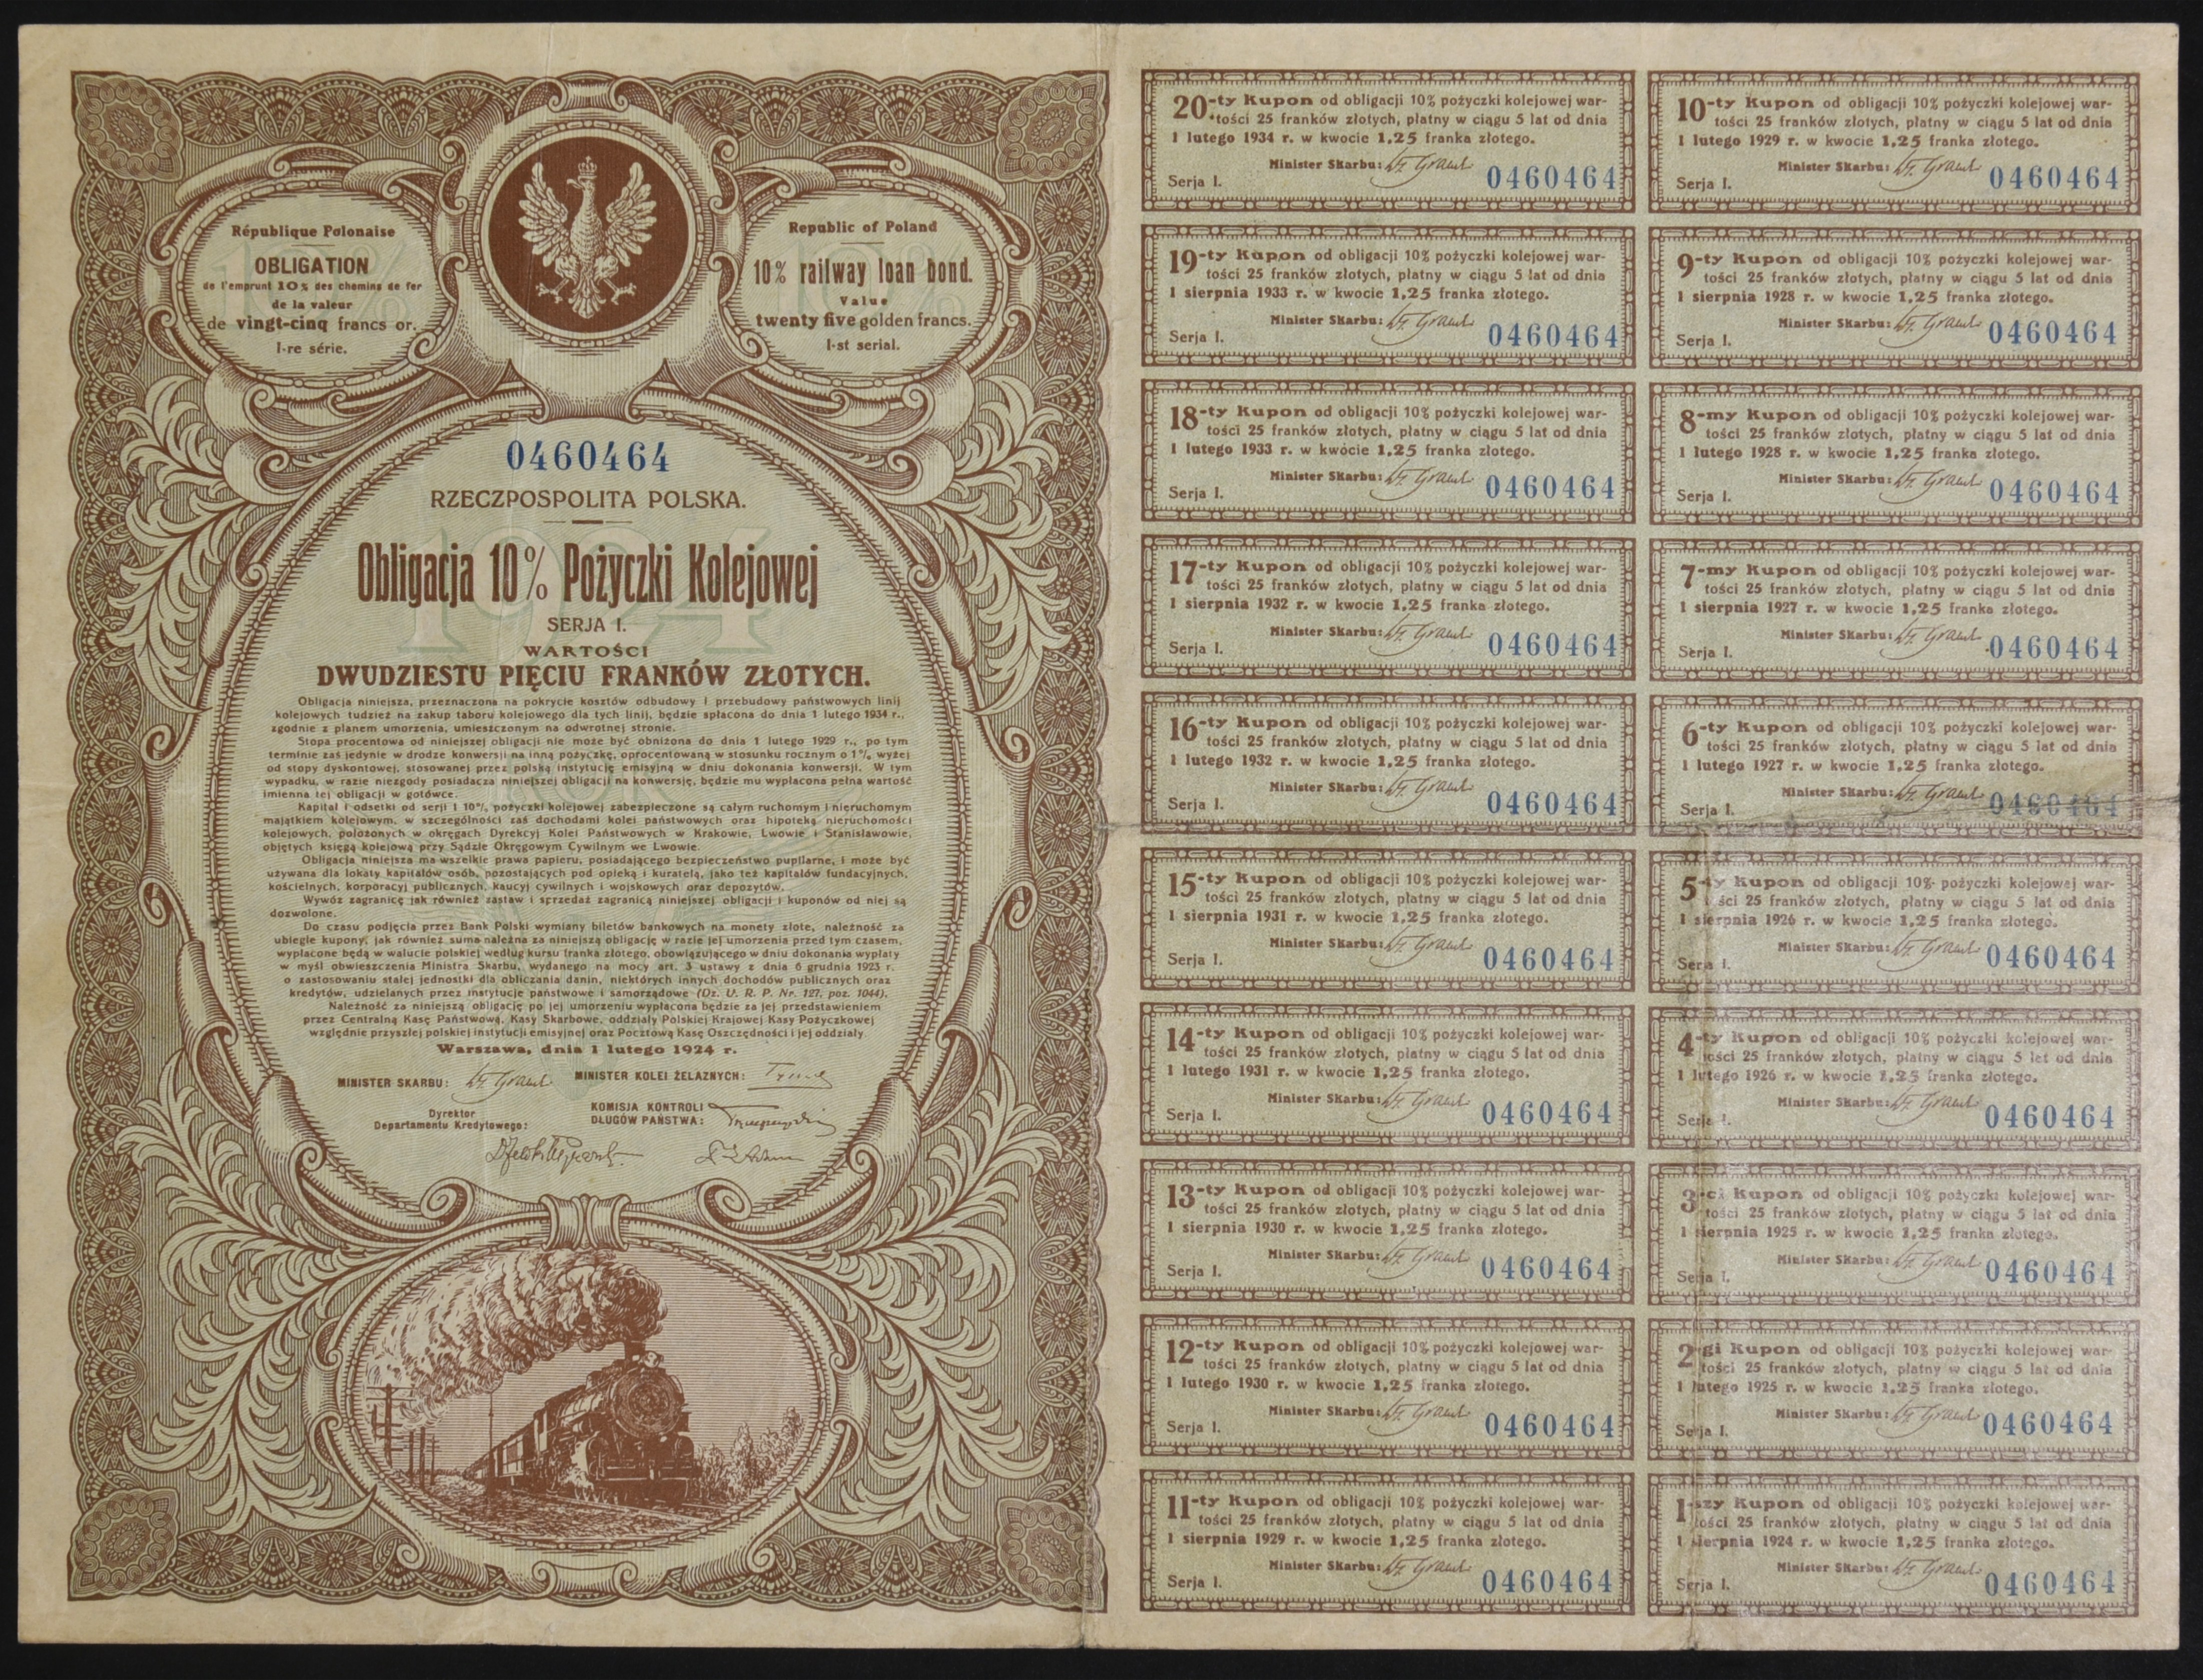 République Polonaise
OBLIGATION
de l'emprunt 10% des chemins de fer
de la valeur
de vingt-cinq francs or.
I-re série.
Republic of Poland
10% railway loan bond.
Value
twenty five golden francs.
I-st serial.
0460464
RZECZPOSPOLITA POLSKA.
1924
Obligacja 10% Pożyczki Kolejowej
SERJA I.
WARTOŚCI
DWUDZIESTU PIĘCIU FRANKÓW ZŁOTYCH.
Obligacja niniejsza, przeznaczona na pokrycie kosztów odbudowy i przebudowy państwowych linij
kolejowych tudzież na zakup taboru kolejowego dla tych linij, będzie spłacona do dnia 1 lutego 1934 r.,
zgodnie z planem umorzenia, umieszczonym na odwrotnej stronie.
Stopa procentowa od niniejszej obligacji nie może być obniżona do dnia 1 lutego 1929 r., po tym
terminie zaś jedynie w drodze konwersji na inną pożyczkę, oprocentowaną w stosunku rocznym o 1% wyżej
od stopy dyskontowej, stosowanej przez polską instytucję emisyjną w dniu dokonania konwersji. W tym
wypadku, w razie niezgody posiadacza niniejszej obligacji na konwersję, będzie mu wypłacona pełna wartość
imienna tej obligacji w gotówce.
Kapitał i odsetki od serji I 10% pożyczki kolejowej zabezpieczone są całym ruchomym i nieruchomym
majątkiem kolejowym, w szczególności zaś dochodami kolei państwowych oraz hipoteką nieruchomości
kolejowych, położonych w okręgach Dyrekcyj Kolei Państwowych w Krakowie, Lwowie i Stanisławowie,
objętych księgą kolejową przy Sądzie Okręgowym Cywilnym we Lwowie.
Obligacja niniejsza ma wszelkie prawa papieru, posiadającego bezpieczeństwo pupilarne, i może być
używana dla lokaty kapitałów osób, pozostających pod opieką i kuratelą, jako też kapitałów fundacyjnych,
kościelnych, korporacyj publicznych, kaucyj cywilnych i wojskowych oraz depozytów.
Wywóz zagranicę jak również zastaw i sprzedaż zagranicą niniejszej obligacji i kuponów od niej są
dozwolone.
Do czasu podjęcia przez Bank Polski wymiany biletów bankowych na monety złote, należność za
ubiegłe kupony, jak również suma należna za niniejszą obligację w razie jej umorzenia przed tym czasem,
wypłacone będą w walucie polskiej według kursu franka złotego, obowiązującego w dniu dokonania wypłaty
w myśl obwieszczenia Ministra Skarbu, wydanego na mocy art. 3 ustawy z dnia 6 grudnia 1923 r.
o zastosowaniu stałej jednostki dla obliczania danin, niektórych innych dochodów publicznych oraz
kredytów, udzielanych przez instytucje państwowe i samorządowe (Dz. U. R. P. Nr. 127, poz. 1044).
Należność za niniejszą obligację po jej umorzeniu wypłacona będzie za jej przedstawieniem
przez Centralną Kasę Państwową, Kasy Skarbowe, oddziały Polskiej Krajowej Kasy Pożyczkowej
względnie przyszłej polskiej instytucji emisyjnej oraz Pocztową Kasę Oszczędności i jej oddziały.
Warszawa, dnia 1 lutego 1924 r.
MINISTER SKARBU: MINISTER KOLEI ŻELAZNYCH:
Dyrektor
Departamentu Kredytowego:
KOMISJA KONTROLI
DŁUGÓW PAŃSTWA:
20-ty Kupon od obligacji 10% pożyczki kolejowej war-
tości 25 franków złotych, płatny w ciągu 5 lat od dnia
1 lutego 1934 r. w kwocie 1,25 franka złotego.
Minister Skarbu: W. Grabski
Serja I. 0460464
19-ty Kupon od obligacji 10% pożyczki kolejowej war-
tości 25 franków złotych, płatny w ciągu 5 lat od dnia
1 sierpnia 1933 r. w kwocie 1,25 franka złotego.
Minister Skarbu: W. Grabski
Serja I. 0460464
18-ty Kupon od obligacji 10% pożyczki kolejowej war-
tości 25 franków złotych, płatny w ciągu 5 lat od dnia
1 lutego 1933 r. w kwocie 1,25 franka złotego.
Minister Skarbu: W. Grabski
Serja I. 0460464
17-ty Kupon od obligacji 10% pożyczki kolejowej war-
tości 25 franków złotych, płatny w ciągu 5 lat od dnia
1 sierpnia 1932 r. w kwocie 1,25 franka złotego.
Minister Skarbu: W. Grabski
Serja I. 0460464
16-ty Kupon od obligacji 10% pożyczki kolejowej war-
tości 25 franków złotych, płatny w ciągu 5 lat od dnia
1 lutego 1932 r. w kwocie 1,25 franka złotego.
Minister Skarbu: W. Grabski
Serja I. 0460464
15-ty Kupon od obligacji 10% pożyczki kolejowej war-
tości 25 franków złotych, płatny w ciągu 5 lat od dnia
1 sierpnia 1931 r. w kwocie 1,25 franka złotego.
Minister Skarbu: W. Grabski
Serja I. 0460464
14-ty Kupon od obligacji 10% pożyczki kolejowej war-
tości 25 franków złotych, płatny w ciągu 5 lat od dnia
1 lutego 1931 r. w kwocie 1,25 franka złotego.
Minister Skarbu: W. Grabski
Serja I. 0460464
13-ty Kupon od obligacji 10% pożyczki kolejowej war-
tości 25 franków złotych, płatny w ciągu 5 lat od dnia
1 sierpnia 1930 r. w kwocie 1,25 franka złotego.
Minister Skarbu: W. Grabski
Serja I. 0460464
12-ty Kupon od obligacji 10% pożyczki kolejowej war-
tości 25 franków złotych, płatny w ciągu 5 lat od dnia
1 lutego 1930 r. w kwocie 1,25 franka złotego.
Minister Skarbu: W. Grabski
Serja I. 0460464
11-ty Kupon od obligacji 10% pożyczki kolejowej war-
tości 25 franków złotych, płatny w ciągu 5 lat od dnia
1 sierpnia 1929 r. w kwocie 1,25 franka złotego.
Minister Skarbu: W. Grabski
Serja I. 0460464
10-ty Kupon od obligacji 10% pożyczki kolejowej war-
tości 25 franków złotych, płatny w ciągu 5 lat od dnia
1 lutego 1929 r. w kwocie 1,25 franka złotego.
Minister Skarbu: W. Grabski
Serja I. 0460464
9-ty Kupon od obligacji 10% pożyczki kolejowej war-
tości 25 franków złotych, płatny w ciągu 5 lat od dnia
1 sierpnia 1928 r. w kwocie 1,25 franka złotego.
Minister Skarbu: W. Grabski
Serja I. 0460464
8-my Kupon od obligacji 10% pożyczki kolejowej war-
tości 25 franków złotych, płatny w ciągu 5 lat od dnia
1 lutego 1928 r. w kwocie 1,25 franka złotego.
Minister Skarbu: W. Grabski
Serja I. 0460464
7-my Kupon od obligacji 10% pożyczki kolejowej war-
tości 25 franków złotych, płatny w ciągu 5 lat od dnia
1 sierpnia 1927 r. w kwocie 1,25 franka złotego.
Minister Skarbu: W. Grabski
Serja I. 0460464
6-ty Kupon od obligacji 10% pożyczki kolejowej war-
tości 25 franków złotych, płatny w ciągu 5 lat od dnia
1 lutego 1927 r. w kwocie 1,25 franka złotego.
Minister Skarbu: W. Grabski
Serja I. 0460464
5-ty Kupon od obligacji 10% pożyczki kolejowej war-
tości 25 franków złotych, płatny w ciągu 5 lat od dnia
1 sierpnia 1926 r. w kwocie 1,25 franka złotego.
Minister Skarbu: W. Grabski
Serja I. 0460464
4-ty Kupon od obligacji 10% pożyczki kolejowej war-
tości 25 franków złotych, płatny w ciągu 5 lat od dnia
1 lutego 1926 r. w kwocie 1,25 franka złotego.
Minister Skarbu: W. Grabski
Serja I. 0460464
3-ci Kupon od obligacji 10% pożyczki kolejowej war-
tości 25 franków złotych, płatny w ciągu 5 lat od dnia
1 sierpnia 1925 r. w kwocie 1,25 franka złotego.
Minister Skarbu: W. Grabski
Serja I. 0460464
2-gi Kupon od obligacji 10% pożyczki kolejowej war-
tości 25 franków złotych, płatny w ciągu 5 lat od dnia
1 lutego 1925 r. w kwocie 1,25 franka złotego.
Minister Skarbu: W. Grabski
Serja I. 0460464
1-szy Kupon od obligacji 10% pożyczki kolejowej war-
tości 25 franków złotych, płatny w ciągu 5 lat od dnia
1 sierpnia 1924 r. w kwocie 1,25 franka złotego.
Minister Skarbu: W. Grabski
Serja I. 0460464